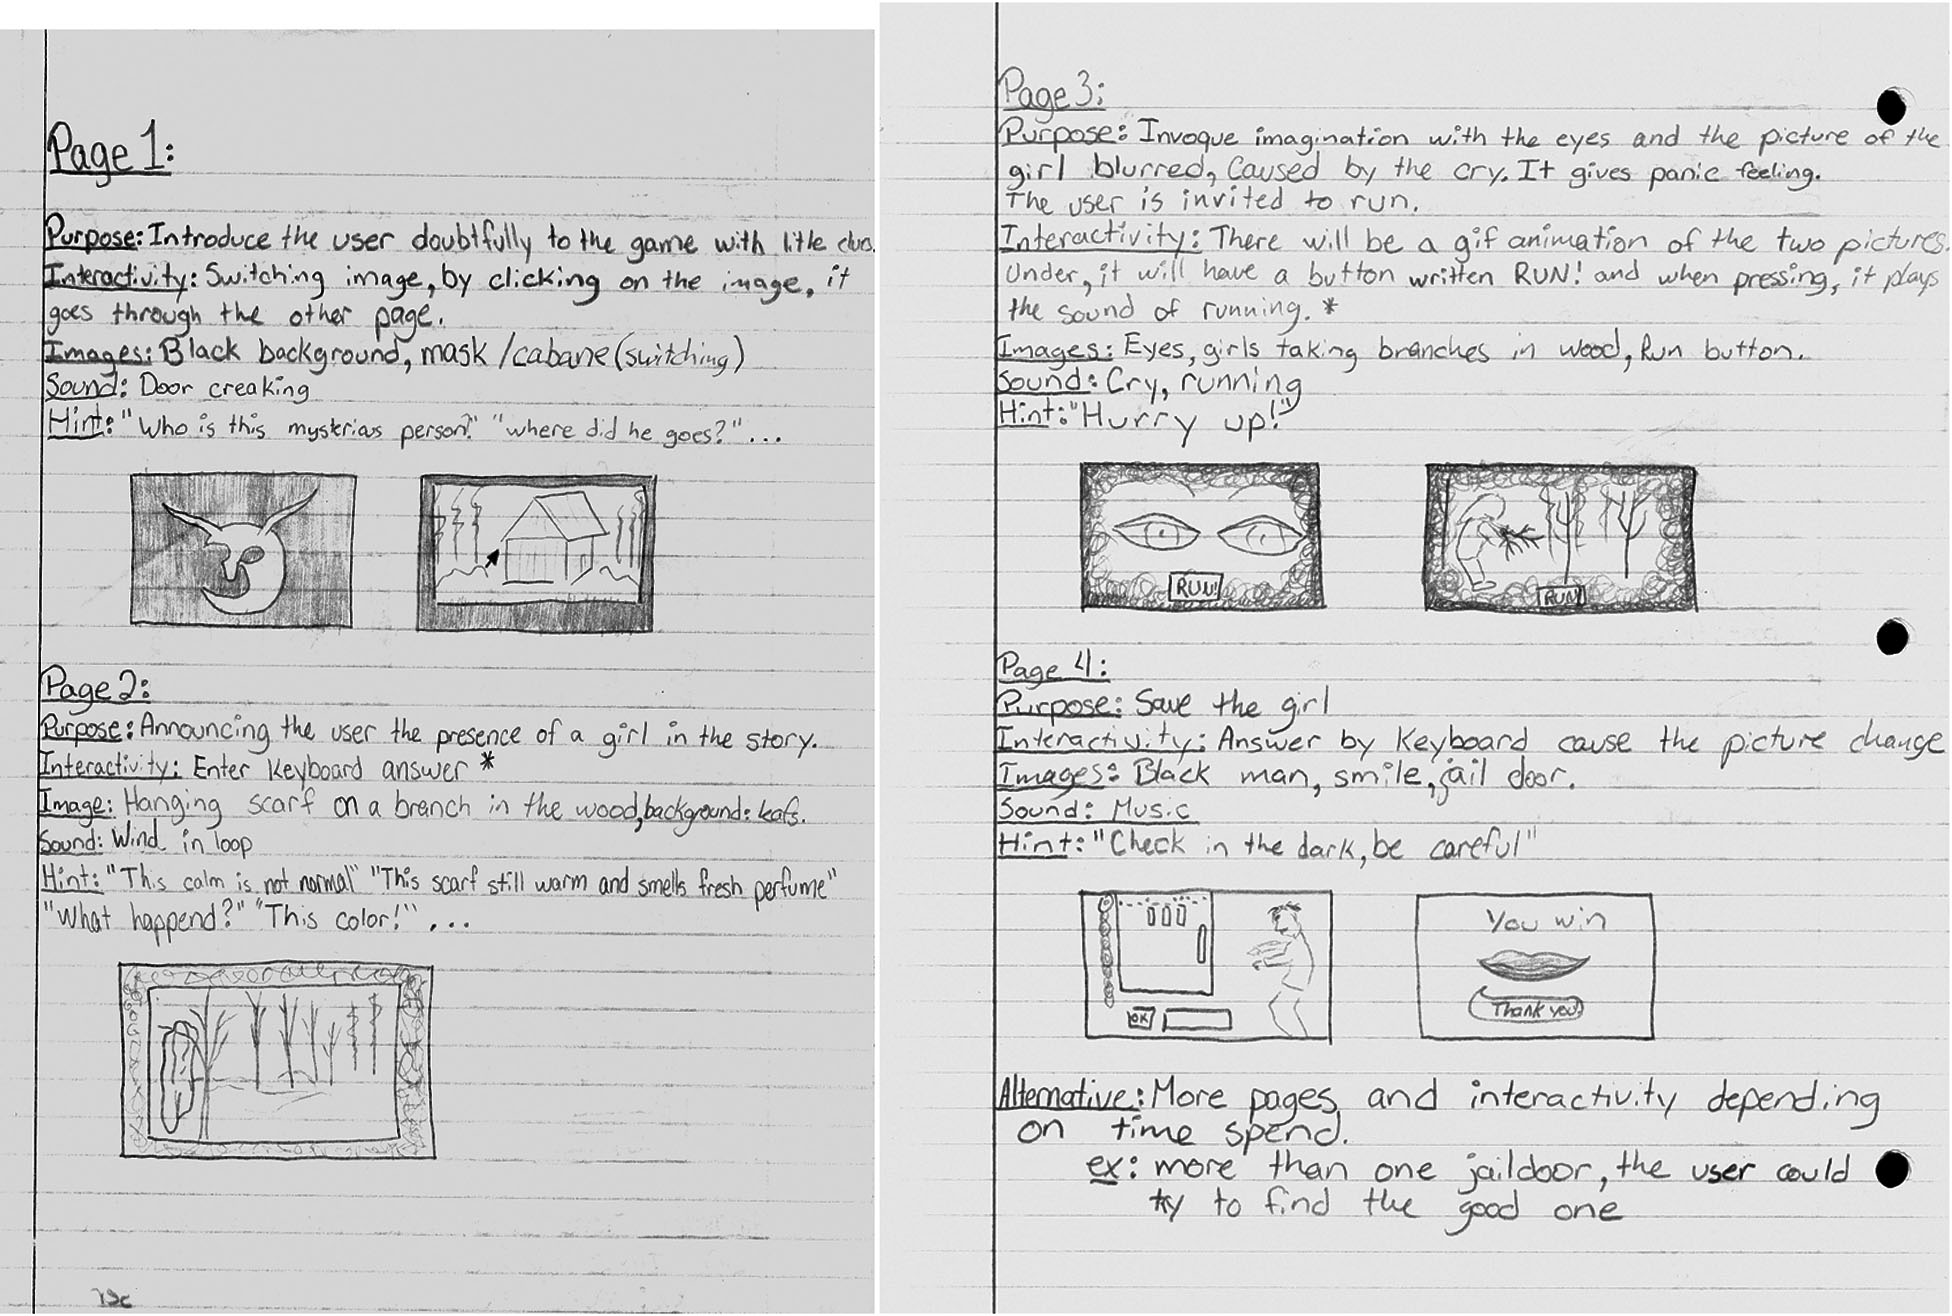 Page 1:
Purpose: Introduce the user doubtfully to the game with little clue.
Interactivity: Switching image, by clicking on the image, it
goes through the other page.
Images: Black background, mask /cabane (switching)
Sound: Door creaking
Hint: "Who is this mysterius person?" "where did he goes?"...
Page 2:
Purpose: Announcing the user the presence of a girl in the story.
Interactivity: Enter Keyboard answer *
Image: Hanging scarf on a branch in the wood, background: leafs.
Sound: Wind in loop
Hint: "This calm is not normal" "This scarf still warm and smells fresh perfume"
"What happend?" "This color!" ...
Page 3:
Purpose: Invoque imagination with the eyes and the picture of the
girl blurred, Caused by the cry. It gives panic feeling.
The user is invited to run.
Interactivity: There will be a gif animation of the two pictures.
Under, it will have a button written RUN! and when pressing, it plays
the sound of running. *
Images: Eyes, girls taking branches in wood, Run button.
Sound: Cry, running
Hint: "Hurry up!"
RUN!
RUN!
Page 4:
Purpose: Save the girl
Interactivity: Answer by Keyboard cause the picture change
Images: Black man, smile, jail door.
Sound: Music
Hint: "Check in the dark, be careful"
OK
You win
Thank you!
Alternative: More pages and interactivity depending
on time spend.
ex: more than one jaildoor, the user could
try to find the good one